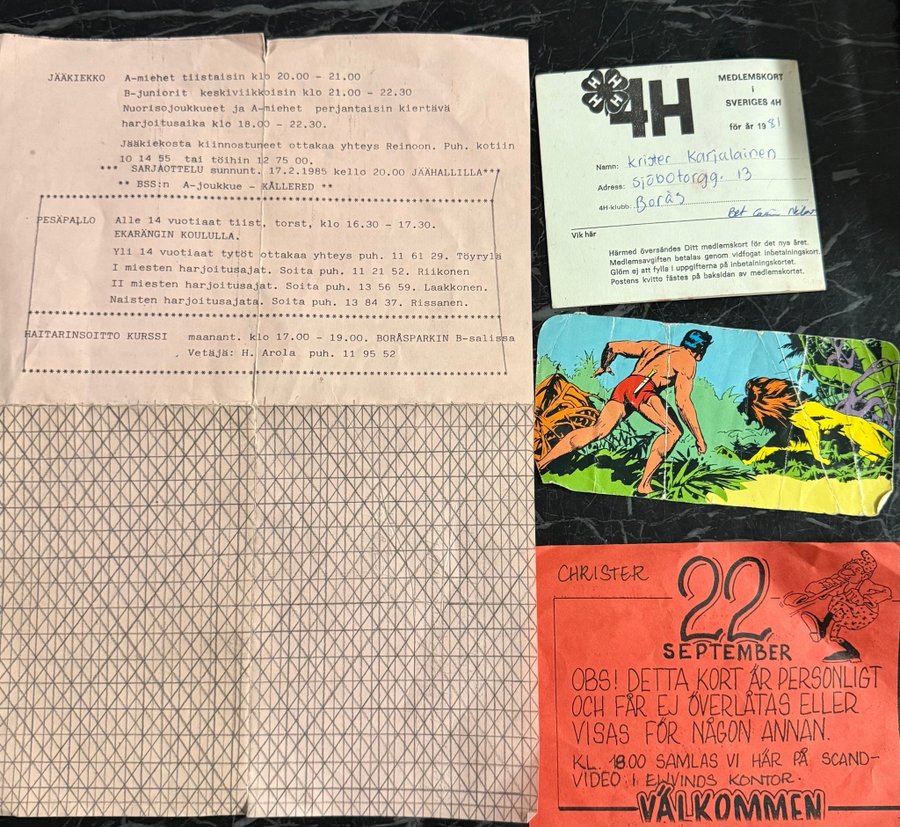 JÄÄKIEKKO A-miehet tiistaisin klo 20.00 - 21.00
B-juniorit keskiviikkoisin klo 21.00 - 22.30
Nuorisojoukkueet ja A-miehet perjantaisin kiertävä
harjoitusaika klo 18.00 - 22.30.
Jääkiekosta kiinnostuneet ottakaa yhteys Reinoon. Puh. kotiin
10 14 55 tai töihin 12 75 00.
*** SARJAOTTELU sunnunt. 17.2.1985 kello 20.00 JÄÄHALLILLA***
** BSS:n A-joukkue - KÅLLERED **
PESÄPALLO Alle 14 vuotiaat tiist, torst, klo 16.30 - 17.30.
EKARÄNGIN KOULULLA.
Yli 14 vuotiaat tytöt ottakaa yhteys puh. 11 61 29. Töyrylä
I miesten harjoitusajat. Soita puh. 11 21 52. Riikonen
II miesten harjoitusajat. Soita puh. 13 56 59. Laakkonen.
Naisten harjoitusajata. Soita puh. 13 84 37. Rissanen.
HAITARINSOITTO KURSSI maanant. klo 17.00 - 19.00. BORÅSPARKIN B-salissa
Vetäjä: H. Arola puh. 11 95 52
H H H H
4H
MEDLEMSKORT
i
SVERIGES 4H
för år 1981
Namn: Krister Karjalainen
Adress: Sjöbotorgg. 13
4H-klubb: Borås
Bet
Vik här
Härmed översändes Ditt medlemskort för det nya året.
Medlemsavgiften betalas genom vidfogat inbetalningskort.
Glöm ej att fylla i uppgifterna på inbetalningskortet.
Postens kvitto fästes på baksidan av medlemskortet.
CHRISTER
22
SEPTEMBER
OBS! DETTA KORT ÄR PERSONLIGT
OCH FÅR EJ ÖVERLÅTAS ELLER
VISAS FÖR NÅGON ANNAN.
KL. 18.00 SAMLAS VI HÄR PÅ SCAND-
VIDEO I EIVINDS KONTOR.
VÄLKOMMEN